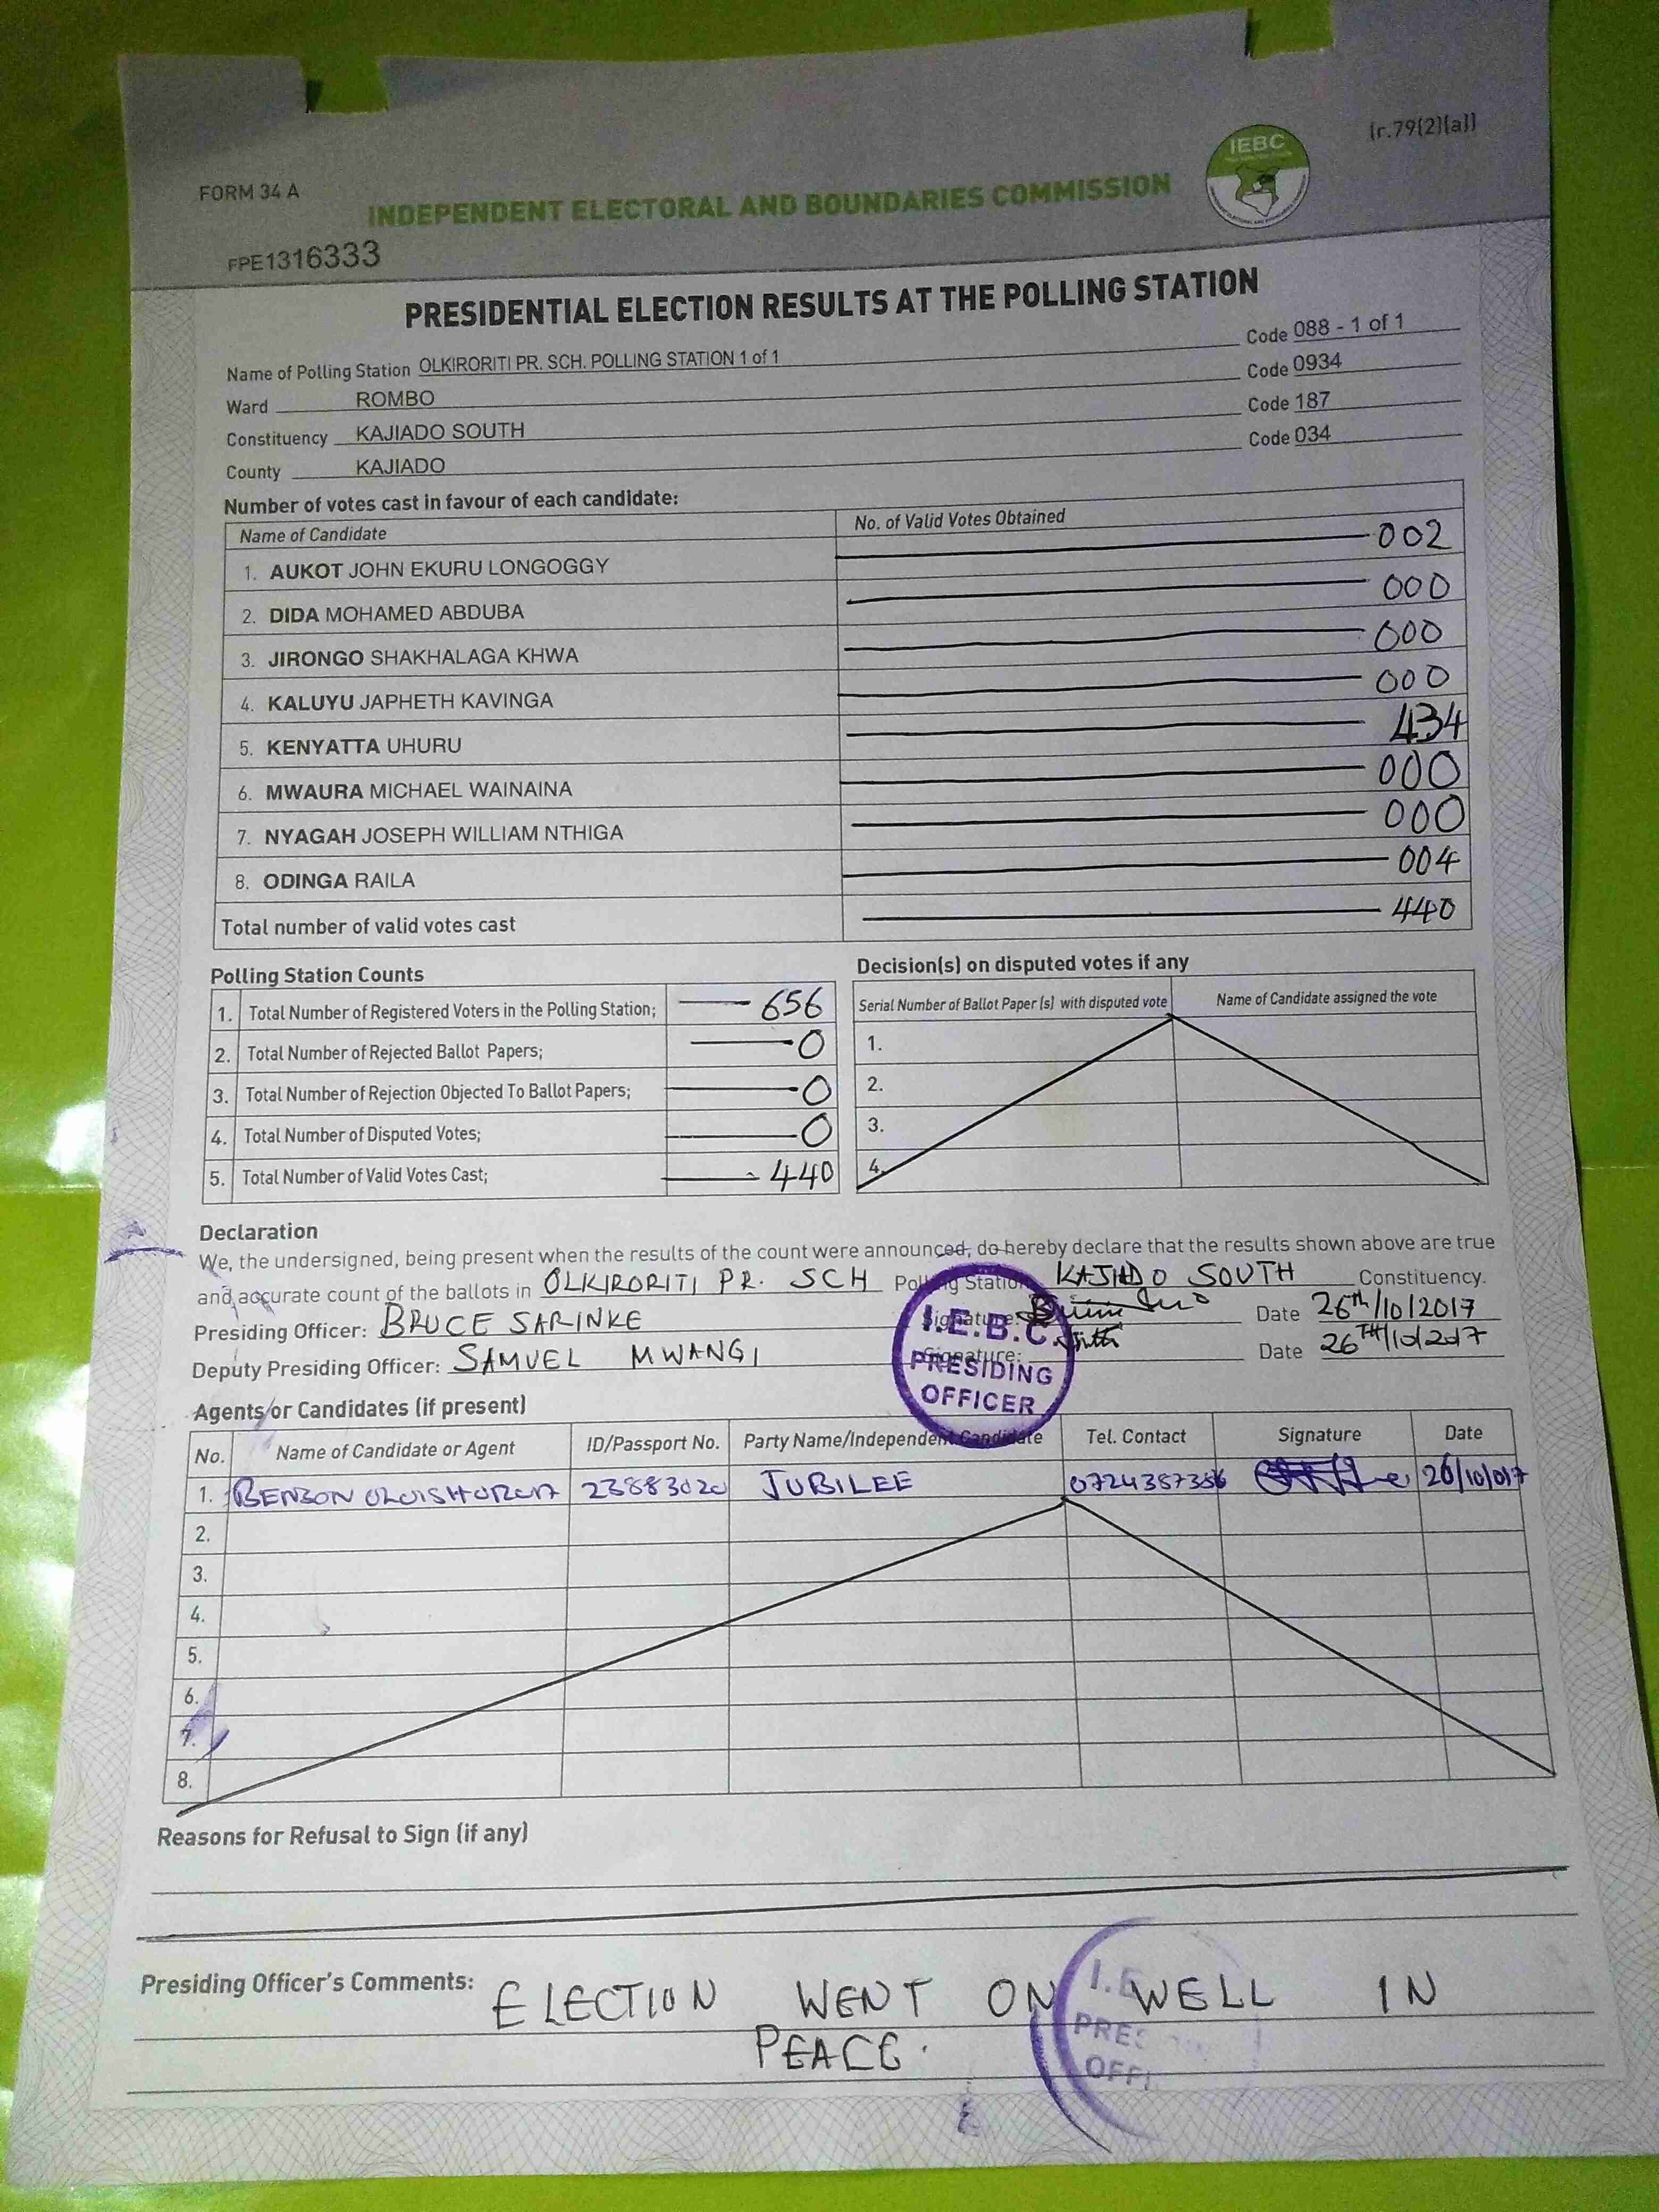 (r.79(2)(a))
IEBC
FORM 34 A
INDEPENDENT ELECTORAL AND BOUNDARIES COMMISSION
FPE1316333
PRESIDENTIAL ELECTION RESULTS AT THE POLLING STATION
Name of Polling Station OLKIRORITI PR. SCH. POLLING STATION 1 of 1 Code 088 - 1 of 1
Ward ROMBO Code 0934
Constituency KAJIADO SOUTH Code 187
County KAJIADO Code 034
Number of votes cast in favour of each candidate:
Name of Candidate No. of Valid Votes Obtained
1. AUKOT JOHN EKURU LONGOGGY 002
2. DIDA MOHAMED ABDUBA 000
3. JIRONGO SHAKHALAGA KHWA 000
4. KALUYU JAPHETH KAVINGA 000
5. KENYATTA UHURU 434
6. MWAURA MICHAEL WAINAINA 000
7. NYAGAH JOSEPH WILLIAM NTHIGA 000
8. ODINGA RAILA 004
Total number of valid votes cast 440
Polling Station Counts
1. Total Number of Registered Voters in the Polling Station; 656
2. Total Number of Rejected Ballot Papers; 0
3. Total Number of Rejection Objected To Ballot Papers; 0
4. Total Number of Disputed Votes; 0
5. Total Number of Valid Votes Cast; 440
Decision(s) on disputed votes if any
Serial Number of Ballot Paper (s) with disputed vote Name of Candidate assigned the vote
1.
2.
3.
4.
Declaration
We, the undersigned, being present when the results of the count were announced, do hereby declare that the results shown above are true
and accurate count of the ballots in OLKIRORITI PR. SCH Polling Station KAJIADO SOUTH Constituency.
Presiding Officer: BRUCE SARINKE Signature: Date 26th/10/2017
Deputy Presiding Officer: SAMUEL MWANGI Signature: Date 26TH/10/2017
I.E.B.C.
PRESIDING
OFFICER
Agents or Candidates (if present)
No. Name of Candidate or Agent ID/Passport No. Party Name/Independent Candidate Tel. Contact Signature Date
1. BENSON 23883020 JUBILEE 0724387386 26/10/017
2.
3.
4.
5.
6.
7.
8.
Reasons for Refusal to Sign (if any)
Presiding Officer's Comments: ELECTION WENT ON WELL IN
PEACE.
I.E
PRES
OFFI